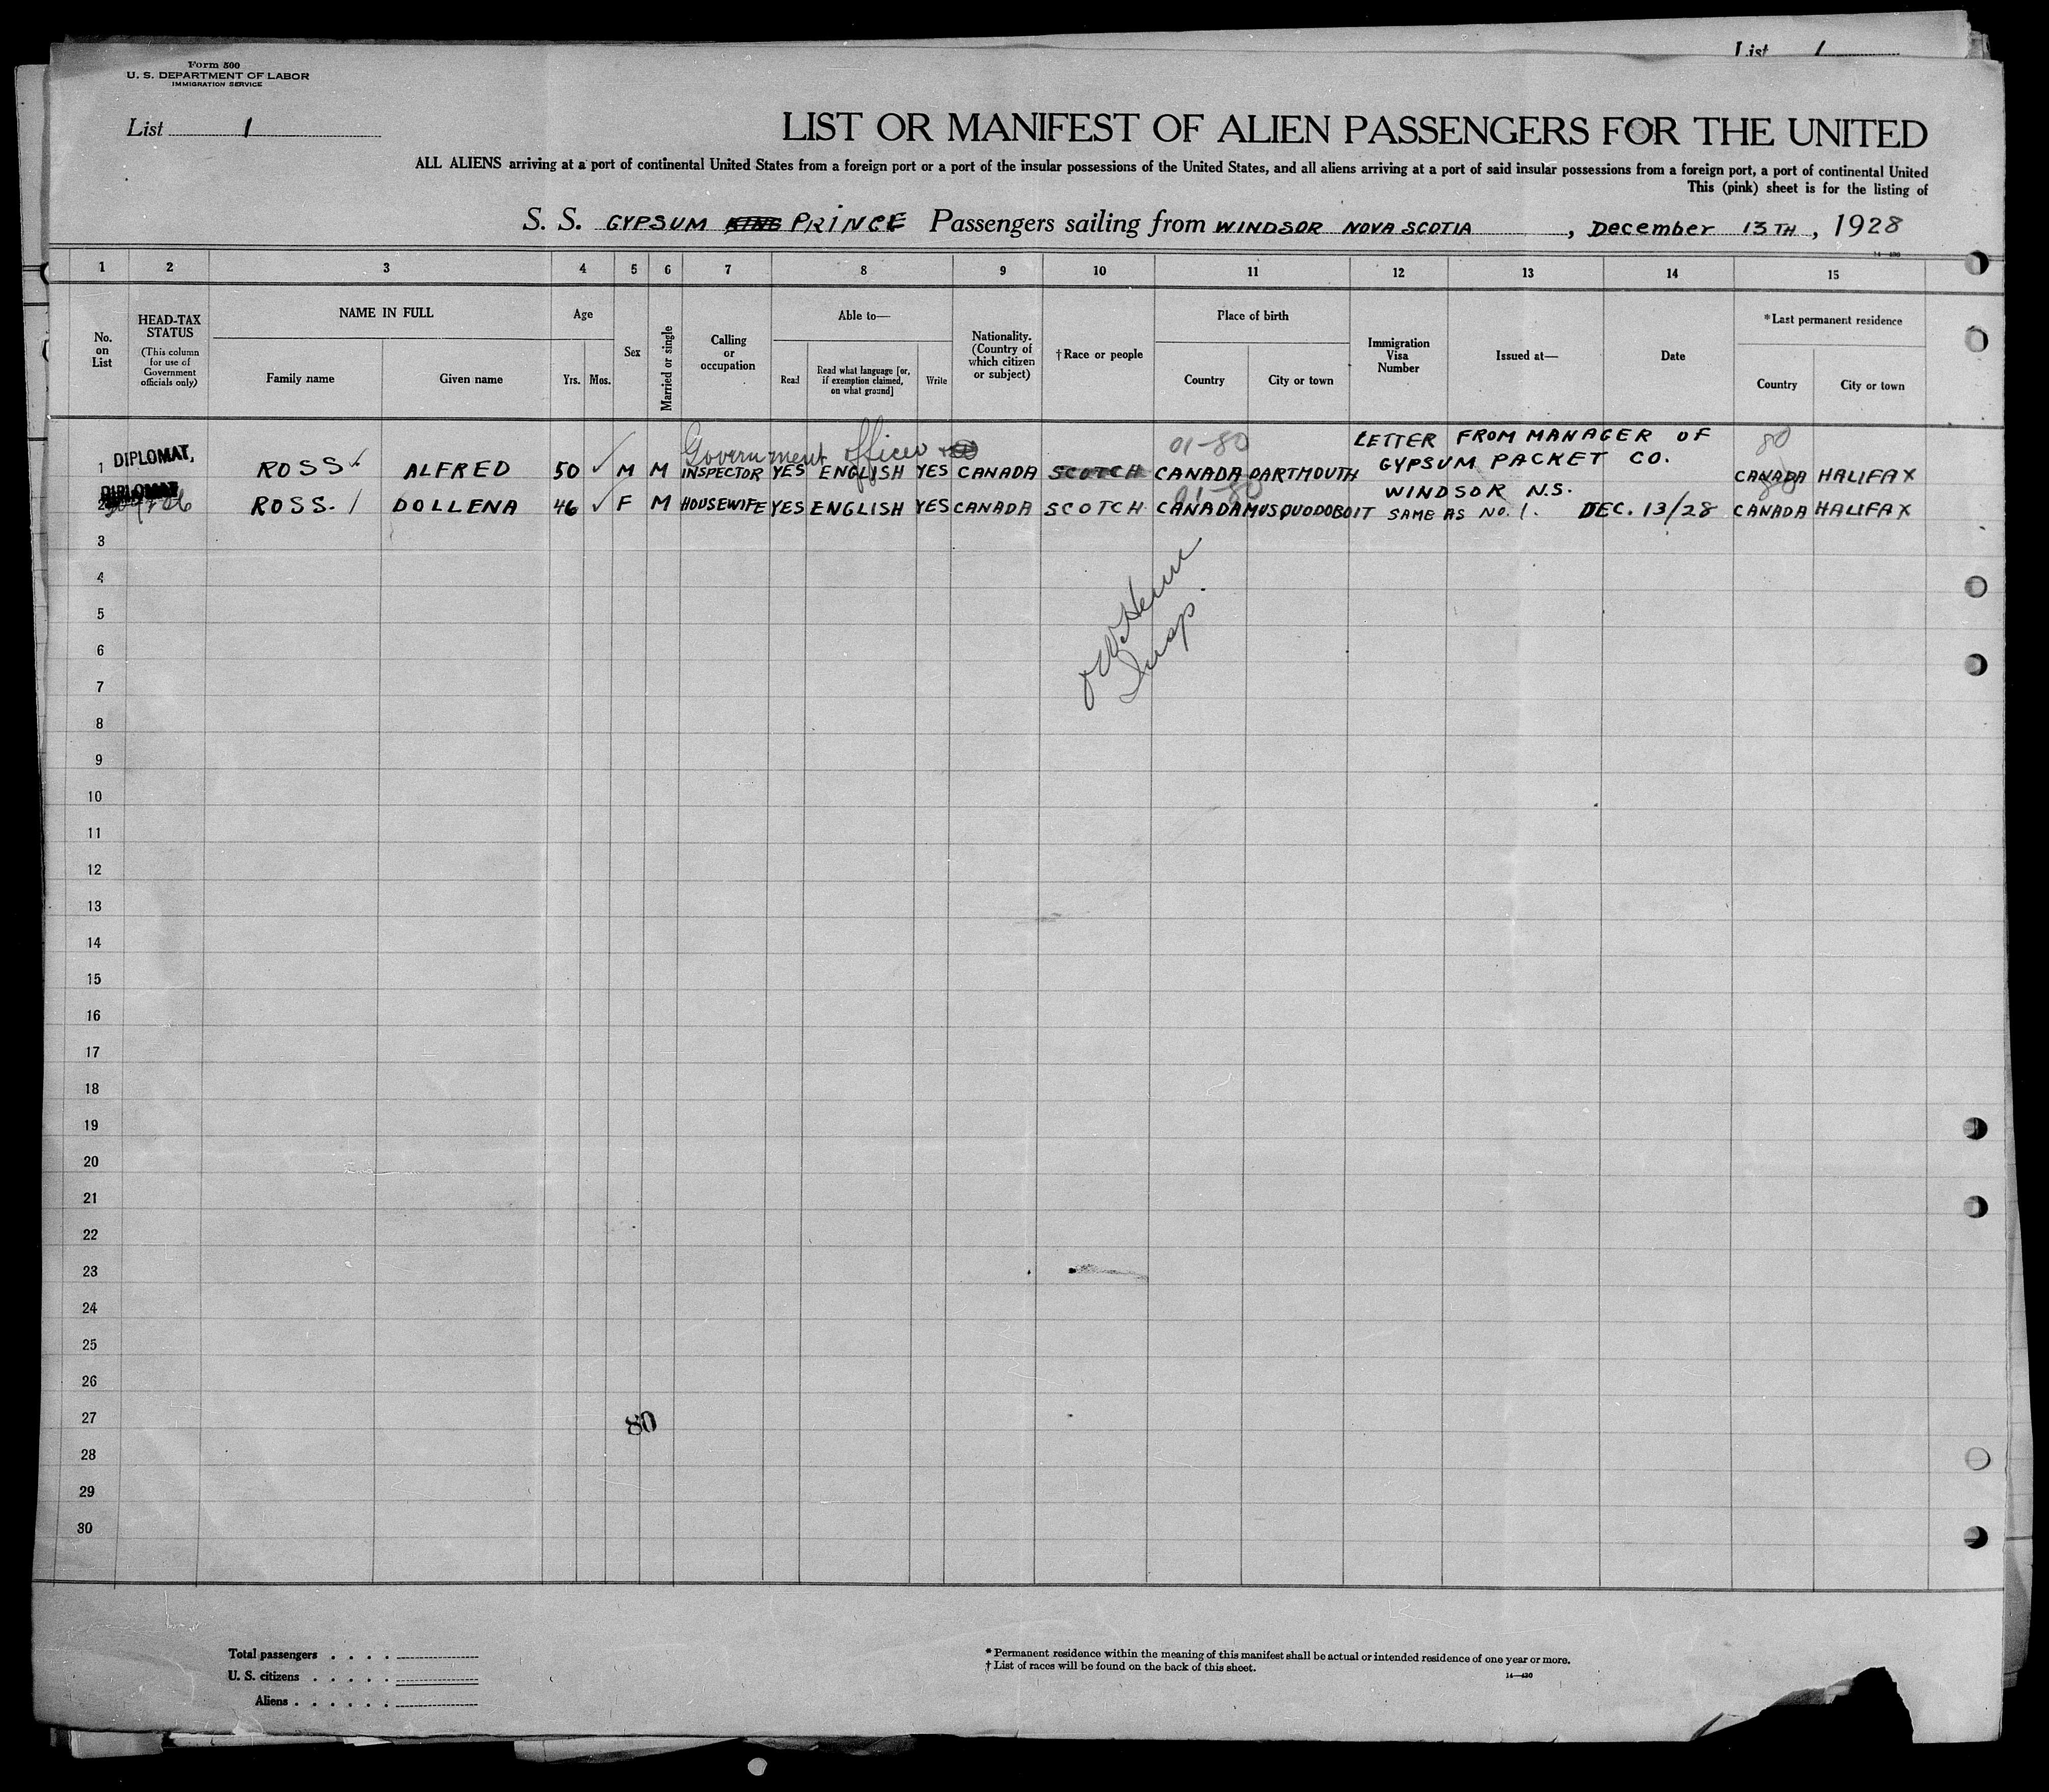 List 1
Form 500
U. S. DEPARTMENT OF LABOR
IMMIGRATION SERVICE
List 1
LIST OR MANIFEST OF ALIEN PASSENGERS FOR THE UNITED
ALL ALIENS arriving at a port of continental United States from a foreign port or a port of the insular possessions of the United States, and all aliens arriving at a port of said insular possessions from a foreign port, a port of continental United
This (pink) sheet is for the listing of
S. S. GYPSUM KING PRINCE Passengers sailing from WINDSOR NOVA SCOTIA, December 13TH, 1928
14—430
1 2 3 4 5 6 7 8 9 10 11 12 13 14 15
No. on List
HEAD-TAX STATUS
(This column for use of Government officials only)
NAME IN FULL
Family name Given name
Age
Yrs. Mos.
Sex
Married or single
Calling or occupation
Able to—
Read
Read what language [or, if exemption claimed, on what ground]
Write
Nationality. (Country of which citizen or subject)
†Race or people
Place of birth
Country City or town
Immigration Visa Number
Issued at—
Date
*Last permanent residence
Country City or town
Government officer 01-80 LETTER FROM MANAGER OF 80
1 DIPLOMAT, ROSS ALFRED 50 M M INSPECTOR YES ENGLISH YES CANADA SCOTCH CANADA DARTMOUTH GYPSUM PACKET CO. CANADA HALIFAX
DIPLOMAT 01-80 WINDSOR N.S. 80
2 ROSS. DOLLENA 46 F M HOUSEWIFE YES ENGLISH YES CANADA SCOTCH CANADA MUSQUODOBOIT SAME AS NO. 1. DEC. 13/28 CANADA HALIFAX
3
4
5
Insp.
6
7
8
9
10
11
12
13
14
15
16
17
18
19
20
21
22
23
24
25
26
27
80
28
29
30
Total passengers . . . .
U. S. citizens . . . . .
Aliens . . . . . .
* Permanent residence within the meaning of this manifest shall be actual or intended residence of one year or more.
† List of races will be found on the back of this sheet.
14—430